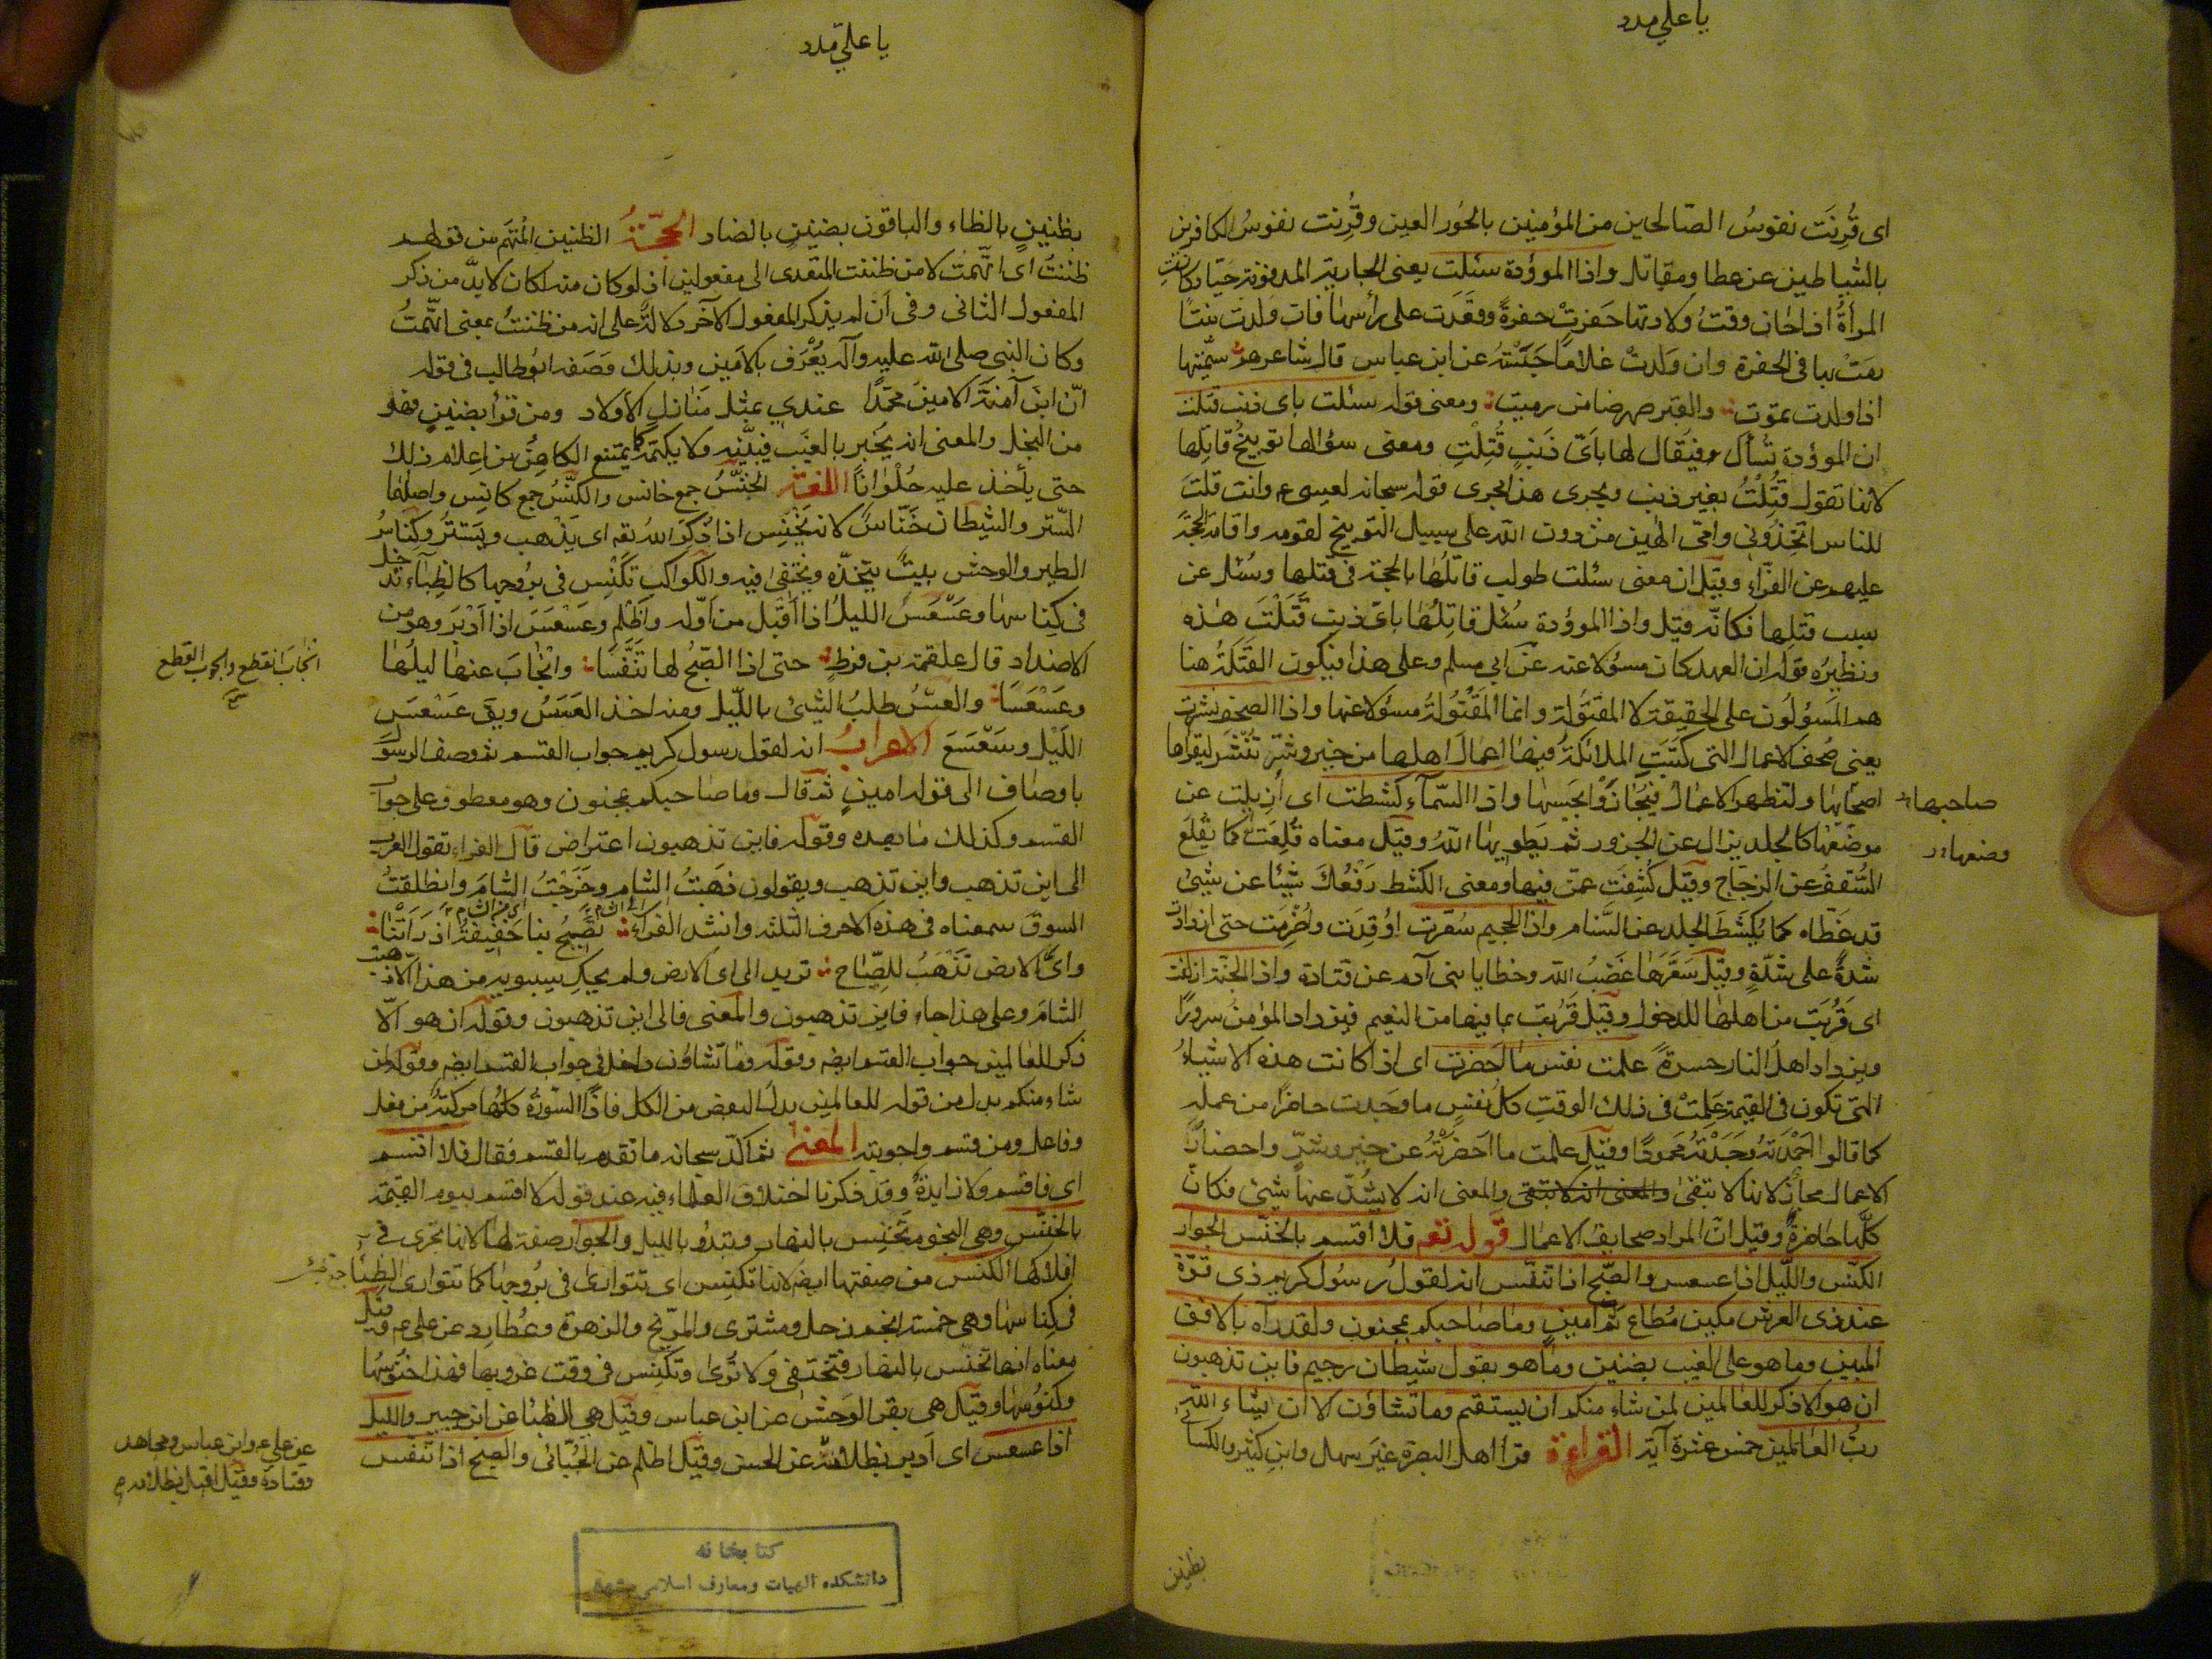 يا علي مدد
اى قُرِنَت نفوسُ الصّالحين من المؤمنين بالحُور العين وقُرِنت نفوسُ الكافرين
بالشياطين عن عطا ومقاتل واذا الموؤدة سئلت يعنى الجارية المدفونة حيّا وكانت
المرأةُ اذا حان وقتُ ولادتها حَفرتْ حفرةً وقعَدَت على رأسها فان ولدت بنتًا
رمَتْ بها فى الحفرة وان وَلدتْ غلامًا حَبَسَتْهُ عن ابن عباس قال شاعرهم سمّيتها
اذا ولدت تموت والقبر صهر ضامن زميت ومعنى قوله سئلت باى ذنب قتلت
ان الموؤدة تُسأل فيُقال لها باَىّ ذَنبٍ قُتِلْتِ ومعنى سؤالها توبيخُ قاتِلِها
لانها تقول قُتِلْتُ بغير ذنب ويجرى هذا مجرى قوله سبحانه لعيسى ع وانت قلتَ
للناس اتخذونى وامّى الهين من دون الله على سبيل التوبيخ لقومه واقامة الحجة
عليهم عن الفرّاء وقيل ان معنى سئلت طولب قاتلُها بالحجة فى قتلها وسُئل عن
سبب قتلِها فكانّه قيل واذا الموؤدة سُئل قاتِلُها باىّ ذنبٍ قَتَلْتَ هذه
ونظيرُه قوله ان العهد كان مسؤلا عنه عن ابى مسلم وعلى هذا فيكون القَتَلَةُ هنا
هم المَسؤلُون على الحقيقة لا المقتولة وانما المَقْتُولَةُ مسؤلا عنها واذا الصحف نشرت
يعنى صُحف الاعمال التى كَتَبَتِ الملائكةُ فيها اعمالَ اهلها من خيرٍ وشرٍّ تُنْشَر ليقرأها
اصحابها ولتظهر الاعمال فيُجازَوْا بحَسبِها واذا السّمآء كشطت اى اُزيلت عن
موضعها كالجلد يزال عن الجزور ثم يَطويها اللّهُ وقيل معناه قُلِعَتْ كما يُقْلَع
السَّقفُ عن الزجّاج وقيل كُشِفَت عمّن فيها ومعنى الكشط رَفْعُكَ شيئا عن شئ
قد غَطّاه كما يُكْشَطُ الجلد عن السَّنام واذا الجحيم سُعّرت اُوقِدَت واُضْرِمَت حتى ازدادت
شدةً على شدّةٍ وقيل سَعَّرَها غَضَبُ الله وخطايا بنى آدم عن قتادة واذا الجنة ازلفت
اى قَرُبَت من اهلها للدخول وقيل قُرّبت بما فيها من النعيم فيزداد المؤمنُ سرورًا
ويزداد اهلُ النار حسرةً علمت نفس ما احضرت اى اذا كانت هذه الاشياءُ
التى تكون فى القيمة عَلِمَتْ فى ذلك الوقتِ كلُ نفسٍ ما وجَدت حاضرًا من عمله
كما قالوا اَحْمَدْتُه وَجَدْتُه مَحمودًا وقيل علمت ما اَحضَرَتْهُ عن خير وشرّ واحضار
الاعمال مجازٌ لانها لا تبقى والمعنى انه لا تبقى والمعنى انه لا يشُذّ عنها شئ فكانّ
كلَّها حاضرةٌ وقيل انّ المراد صحايفُ الاعمال قوله تعم فلا اقسم بالخنّس الجوار
الكنّس والليل اذا عسعس والصّبح اذا تنفّس انه لقولُ رسُول كريم ذى قوّة
عند ذى العرش مكين مُطاع ثَمّ امينٍ وما صاحبكم بمجنون ولقد رآه بالافق
المبين وما هو على الغيب بضنين وما هو بقول شيطان رجيم فاين تذهبون
ان هو الا ذكر للعالمين لمن شاء منكم ان يستقيم وما تشاؤن الا ان يشاء اللّه
ربُّ العالمين خمس عشرة آية القراءة قرأ اهل البصرة غير سهل وابن كثير والكسائى
صاحبها
وضعها
بظنين
يا علي مدد
بظنينٍ بالظاء والباقون بضنينٍ بالضاد الحجّةُ الظنين المُتَّهَم من قولهم
ظننتُ اى اتّهمتُ لا من ظننت المتعدى الى مفعولين اذ لو كان منه لكان لا بدّ من ذكر
المفعول الثانى وفى اَن لم يذكر المفعول الآخر دلالةٌ على انه من ظننتُ بمعنى اتّهمتُ
وكان النبى صلى الله عليه وآله يُعْرَف بالامين وبذلك وَصَفَه ابوطالب فى قوله
انّ ابنَ آمنَةَ الامينَ محمّدًا عندى بمثل مَنَازلِ الاَولاد ومن قرأ بضنينٍ فهو
من البخل والمعنى انه يُخبر بالغيب فيبيّنه ولا يكتمه كما يمتنع الكاهنُ من اعلام ذلك
حتى يأخذ عليه حُلْوانًا اللغة الخنّسُ جمع خانس والكنّسُ جمع كانس واصلها
السّتر والشيطان خنّاسٌ لانه يَخْنِس اذا ذُكرَ الله تعم اى يَذهب ويَستترُ وكِناسُ
الطير والوحش بيتٌ يتخذه ويختفى فيه والكواكب تكنِس فى بُروجها كالظباء تدخل
فى كِناسها وعَسْعَسَ الليلُ اذا اَقْبَل من اَوّله واَظلَم وعَسْعَسَ اذا اَدْبَرَ وهو من
الاضداد قال علقمة بن قرط حتى اذا الصّبحُ لها تَنَفَّسَا وانْجابَ عنها ليلُها
وعَسْعَسَا والعَسُّ طلبُ الشئ بالليل ومنه اخذ العَسَسُ ويق عَسْعَسَ
اللَيْل وسَعْسَعَ الاعرابُ انه لقول رسول كريم جواب القسم ثم وصف الرسول
باوصاف الى قوله امينٍ ثم قال وما صاحبكم بمجنون وهو معطوف على جواب
القسم وكذلك ما بعده وقوله فاين تذهبون اعتراض قال الفراء تقول العرب
الى اين تذهب واين تذهب ويقولون ذهَبتُ الشام وخَرجْتُ الشامَ وانطلقتُ
السوقَ سمعناه فى هذه الاحرف الثلثه وانشد الفرّاء تَصيحُ بنا حَنيفَةُ اذ رَأَتْنا
واىَّ الارض تَذْهَبُ للصّياح تريد الى اى الارض ولم يحك سيبويه من هذا الا ذهبت
الشامَ وعلى هذا جاء فاين تذهبون والمعنى فالى اين تذهبون وقوله ان هو الّا
ذكر للعالمين جواب القسم ايضا وقوله وما تشاؤن داخل فى جواب القسم ايضا وقوله لمن
شاء منكم بدل من قوله للعالمين بدلَ البعض من الكل فاذًا السّورةُ كلُّها مركبّةٌ من فعل
وفاعل ومن قسم واجوبته المعنى ثم اكّد سبحانه ما تقدم بالقسم فقال فلا اقسم
اى فاقسم ولا زايدةٌ وقد ذكرنا اختلاف العلماء فيه عند قوله لا اقسم بيوم القيمة
بالخنّس وهى النجوم تَخْنِس بالنهار وتبدُو بالليل والجوار صفة لها لانها تجرى فى
افلاكها الكنّس من صفتها ايضا لانها تكنِس اى تتوارى فى بُروجها كما تتوارى الظباء
فى كِناسها وهى خمسة انجم زحل ومشترى والمرّيخ والزهرة وعُطارِد عن على ع وقيل
معناه انها تخنس بالنهار فتختفى ولا تُرى وتكنِس فى وقت غروبها فهذا خنُوسُها
وكنُوسُها وقيل هى بقر الوَحش عن ابن عباس وقيل هى الظباء عن ابن جبير والليل
اذا عسعس اى اَدبر بظلامه عن الحسن وقيل اظلم عن الجُبّائى والصبح اذا تنفس
انجابَ انقطع والجوب القطع
عن علي ع وابن عباس ومجاهد
وقتادة وقيل اقبل بظلامه
كتابخانه
دانشكده الهيات ومعارف اسلامى مشهد